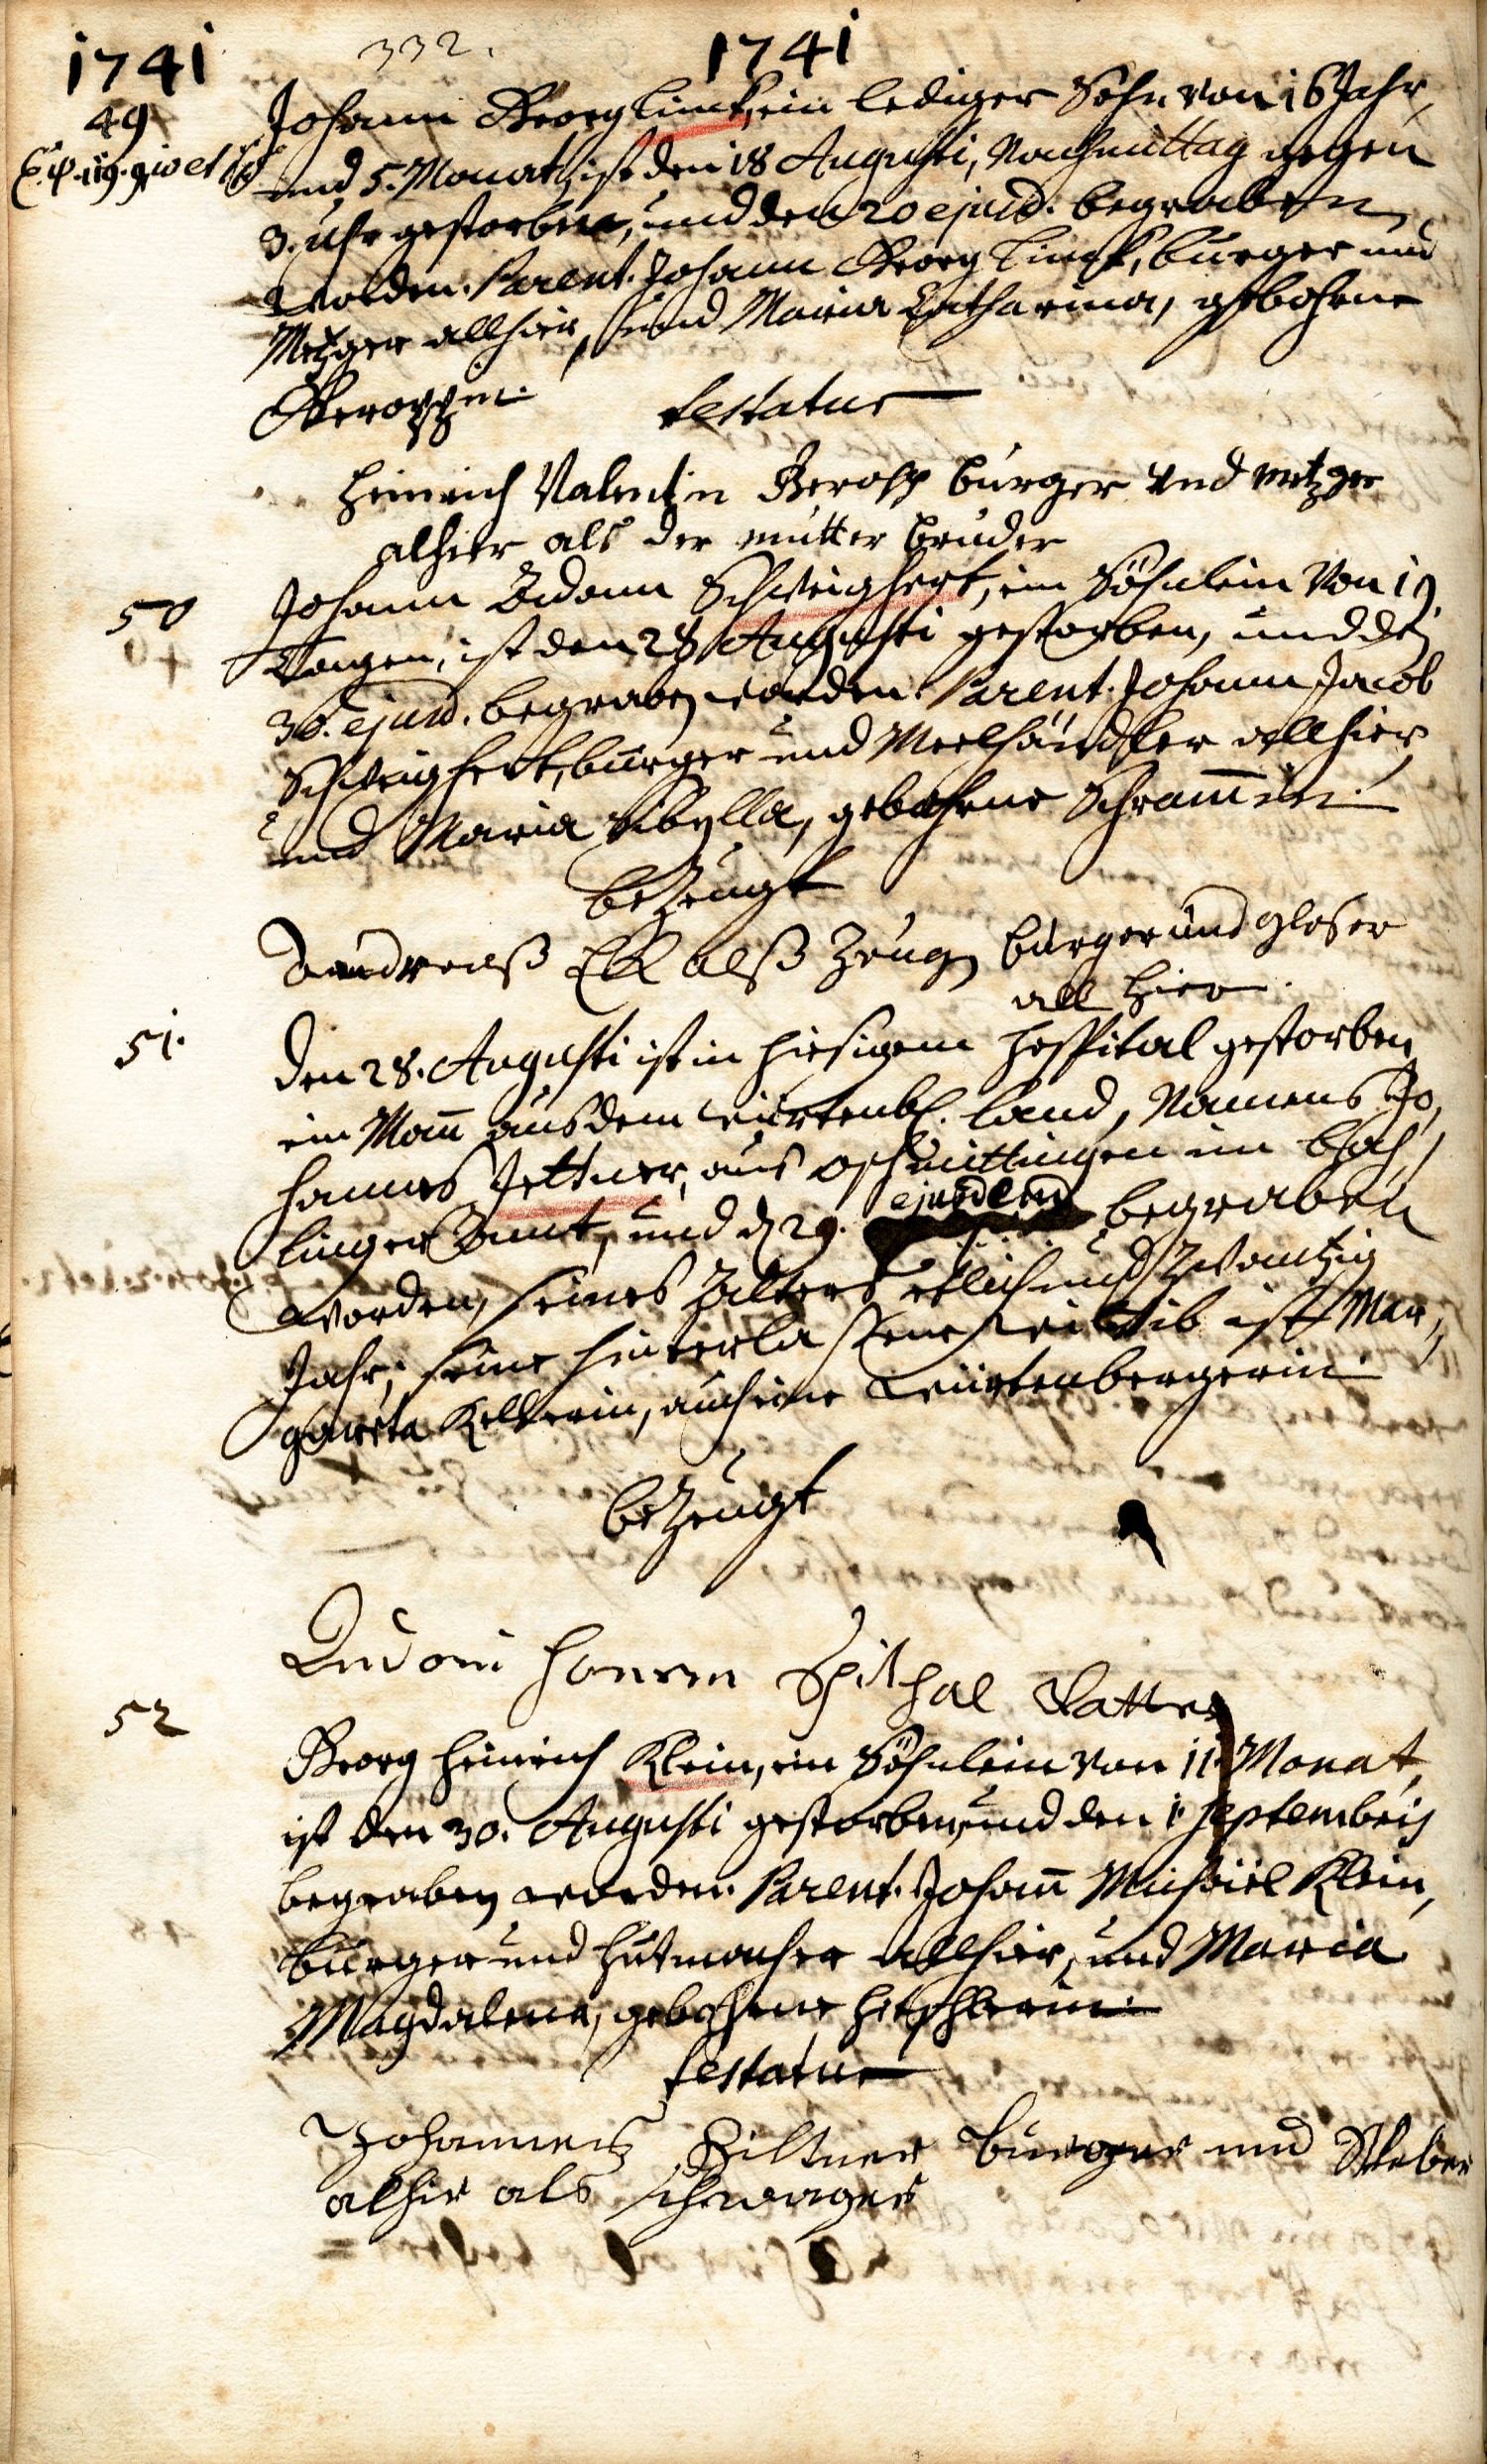 1741 332. 1741
49
Johann Georg Linck, ein lediger Sohn von 16 Jahr,
und 5. Monath, ist den 18 Augusti, Nachmittag gegen
3. uhr gestorben, und den 20 ejusd. begraben
worden. Parent. Johann Georg Linck, burger und
Metzger allhier, und Maria Catharina, gebohrne
testatur
Heinrich Valentin burger und metzger
alhier als der mutter bruder
50
Johann Adam Schweighert, ein Söhnlein von 19.
Tagen, ist den 28 Augusti gestorben, und den
30. ejusd. begraben worden. Parent. Johann Jacob
Schweighert, burger und Meelhändler allhier,
und Maria Sibylla, gebohrne Schrammin.
bezeugt
Andreaß Eck alß Zeug burger und glaser
all hier.
51.
Den 28. Augusti ist in hiesigem Hospital gestorben
ein Mann aus dem Würtenb. Land, Namens Jo,
hannes Jettner, aus im Bah,
linger Amt, und d 29. ejusdem begraben
worden, seines Alters etlich und zwantzig
Jahr; seine hinterlassene Wittib ist Mar,
gareta Kellerin, auch eine Würtenbergerin
bezeugt
Spithal Vatter
52
Georg Heinrich Klein, ein Söhnlein von 11. Monat,
ist den 30. Augusti gestorben, und den 1. Septembris
begraben worden. Parent. Johann Michael Klein,
burger und Hutmacher allhier, und Maria
Magdalena, gebohrne
testatur
Johannes Hiltner burger und Weber
alhie als schwager